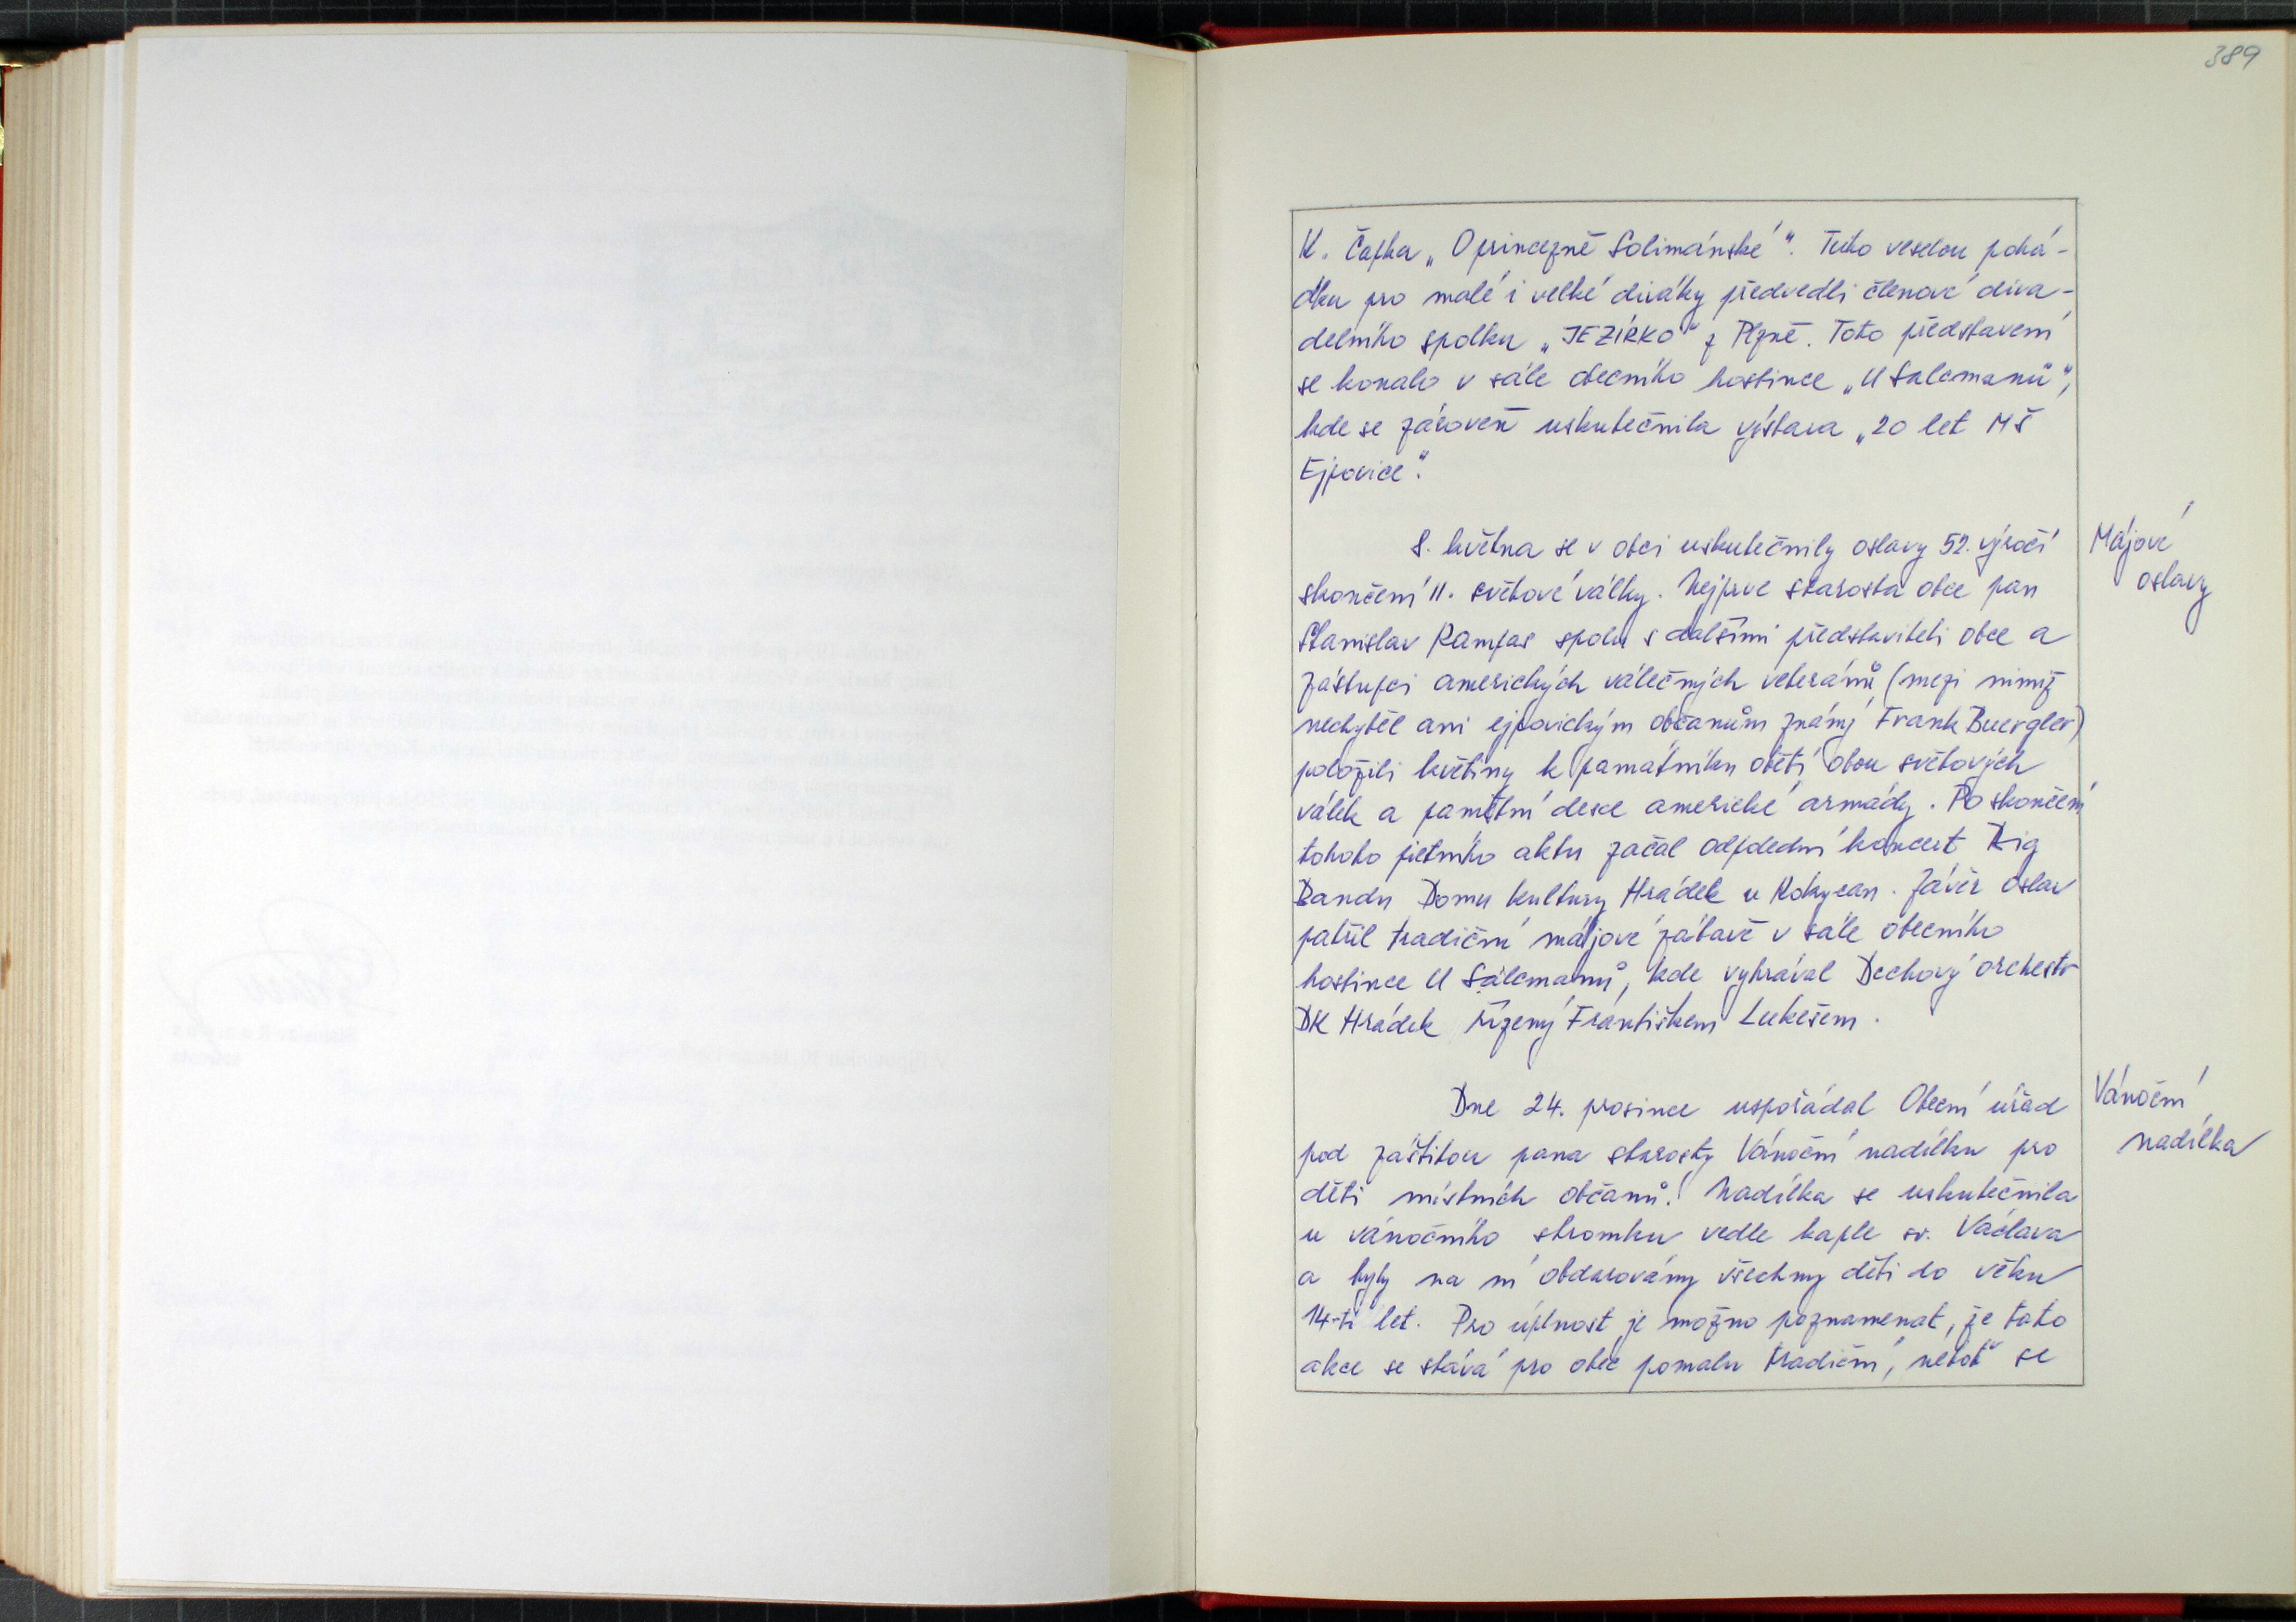 389
K. Čapka „O princezně Solimánské“. Tuto veselou pohá-
dku pro malé i velké diváky předvedli členové diva-
delního spolku „JEZÍRKO“ z Plzně. Toto představení
se konalo v sále obecního hostince „U Salcmanů“,
kde se zároveň uskutečnila výstava „20 let MŠ
Ejpovice“.
8. května se v obci uskutečnily oslavy 52. výročí
Májové
skončení II. světové války. Nejprve starosta obce pan
oslavy
Stanislav Rampas spolu s dalšími představiteli obce a
zástupci amerických válečných veteránů (mezi nimiž
nechyběl ani ejpovickým občanům známý Frank Buergler)
položili květiny k památníku obětí obou světových
válek a pamětní desce americké armády. Po skončení
tohoto pietního aktu začal odpolední koncert Big
Bandu Domu kultury Hrádek u Rokycan. Závěr oslav
patřil tradiční májové zábavě v sále obecního
hostince U Sálcmanů, kde vyhrával Dechový orchestr
DK Hrádek řízený Františkem Lukešem.
Dne 24. prosince uspořádal Obecní úřad
Vánoční
pod záštitou pana starosty Vánoční nadílku pro
nadílka
děti místních občanů. Nadílka se uskutečnila
u vánočního stromku vedle kaple sv. Václava
a byly na ní obdarovány všechny děti do věku
14-ti let. Pro úplnost je možno poznamenat, že tato
akce se stává pro obec pomalu tradiční, neboť se